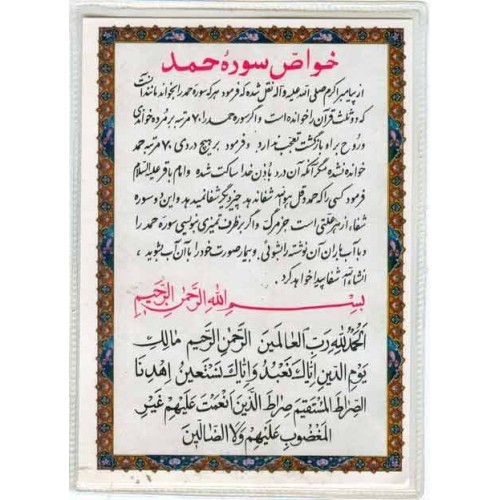 خواص سوره حمد
از پیامبر اکرم صلی الله علیه و آله نقل شده که فرمود هر که سوره حمد را بخواند مانند آنست
که دو ثلث قرآن را خوانده است و اگر سوره حمد را ۷۰ مرتبه بر مرده خواندی
و روح بر او بازگشت تعجب ندارد و فرمود بر هیچ دردی ۷۰ مرتبه حمد
خوانده نشده مگر آنکه آن درد باذن خدا ساکت شده و امام باقر علیه السلام
فرمود کسی را که حمد و قل هو الله شفا ندهد چیز دیگر شفا نمیدهد و این دو سوره
شفاء از هر علتی است جز مرگ و اگر بر ظرف تمیزی بنویسی سوره حمد را
و با آب باران آن نوشته را بشوئی و بیمار صورت خود را با آن آب بشوید ،
انشاء الله شفا پیدا خواهد کرد .
بسم الله الرحمن الرحیم
الحمد لله رب العالمین الرحمن الرحیم مالك
یوم الدین ایاك نعبد وایاك نستعین اهدنا
الصراط المستقیم صراط الذین انعمت علیهم غیر
المغضوب علیهم ولا الضالین